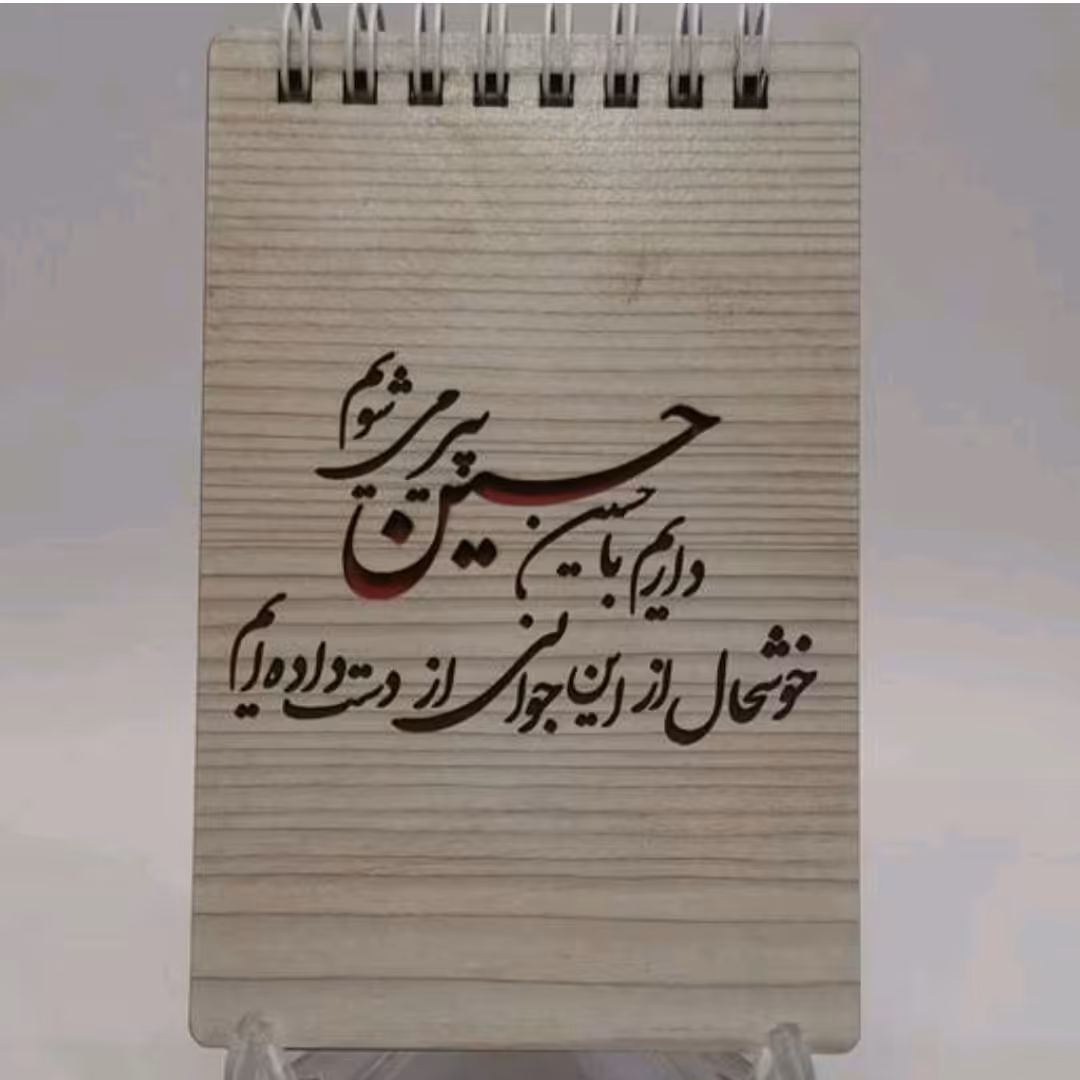 داریم با حسین حسین پیر می شویم
خوشحال از این جوانی از دست داده ایم